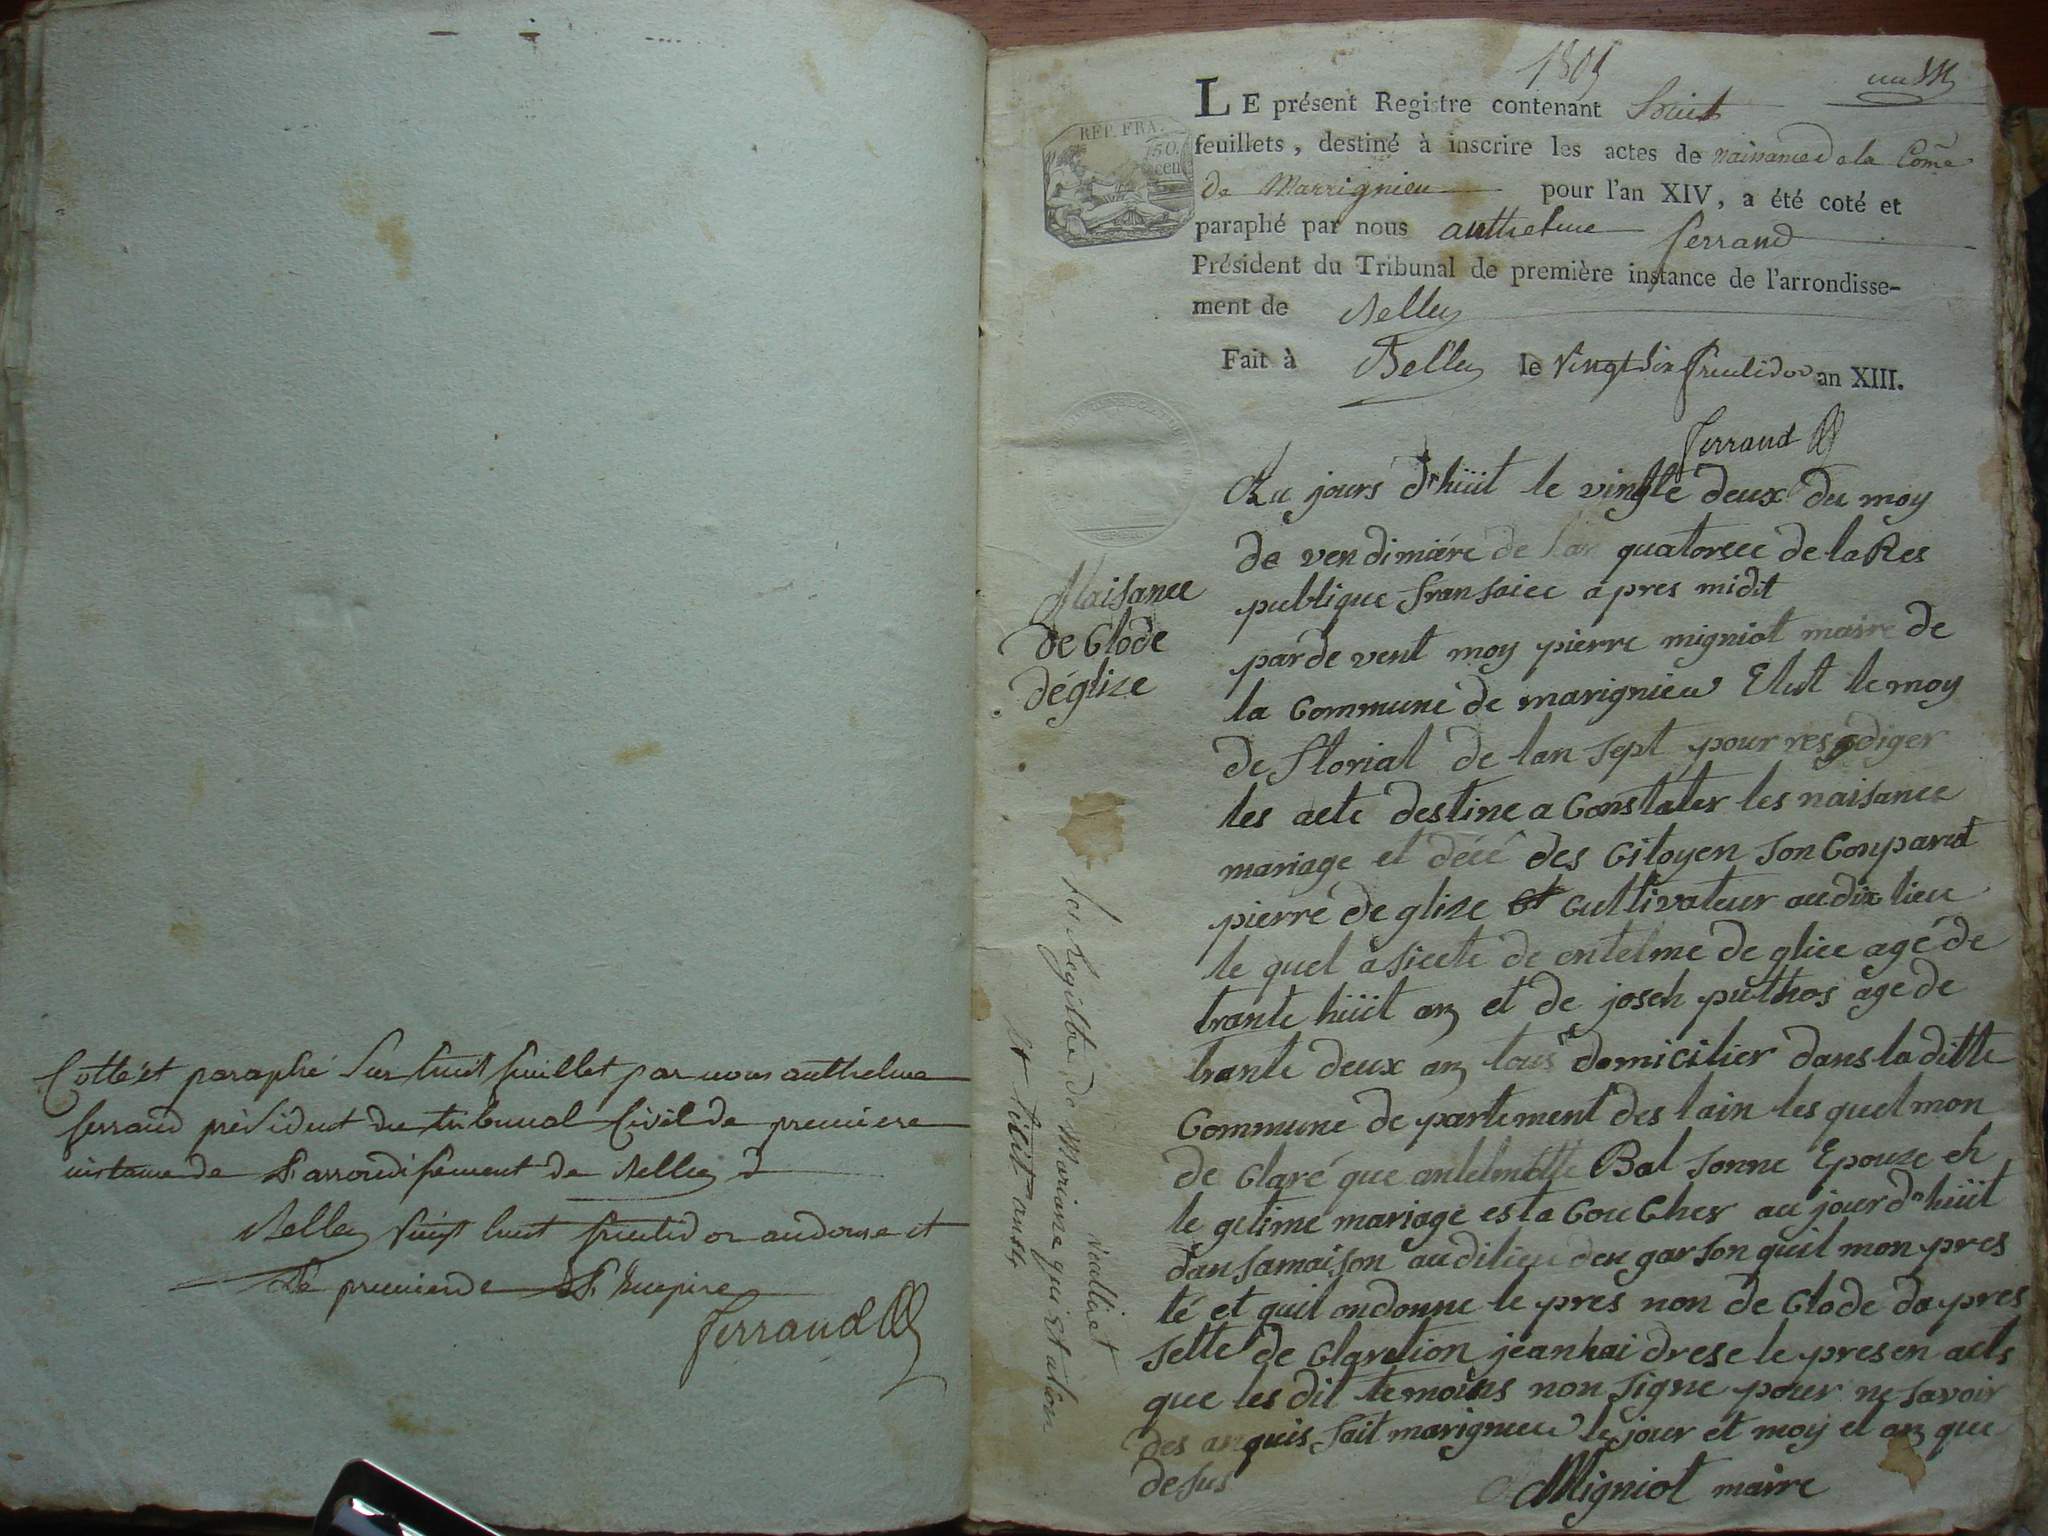 Cotté et paraphé Sur huit feuillet par nous anthelme
ferrand président du tribunal Civil de premiere
instance de L'arrondissement de Belley
Belley vingt huit fructidor an douze et
Le premier de L'Empire
Ferrand
1805
un
LE présent Registre contenant huit
feuillets, destiné à inscrire les actes de naissance de la Come
de Marrignieu pour l'an XIV, a été coté et
paraphé par nous anthelme ferrand
Président du Tribunal de première instance de l'arrondisse-
ment de Belley
Fait à Belley le Vingt Six fructidor an XIII.
Ferrand
REP. FRA.
50
cen
Naisance
de Glode
déglize
Au jours d'huit le vingte deux du moy
de vendimiére de lan quatorsee de la Res
publique fransaice apres midit
par de vent moy pierre migniot maire de
la Commune de marignieu Elut le moy
de florial de lan sept pour resodiger
les acte destine a Constater les naisance
mariage et décé des Citoyen son Conparut
pierre de glize cultivateur audit lieu
le quel asicete de entelme de glice agé de
trante huit an et de joseh puthos age de
trante deux an tous domicilier dans la ditte
Commune de partement des lain les quel mon
de Claré que antelmette Bal sonne Epouze eh
le getime mariage esta Coucher au jourd'huit
dansamaison audilieu den garson quil mon pres
té et quil ondonne le pres non de Glode da pres
sette de Claration jeanhai drese le presen acts
que les dit temoins non signe pour ne savoir
des anquis fait marignieu le jour et moy et an que
desus
Migniot maire
Les Registre de Marianne qui Et alon
Et Petit ans